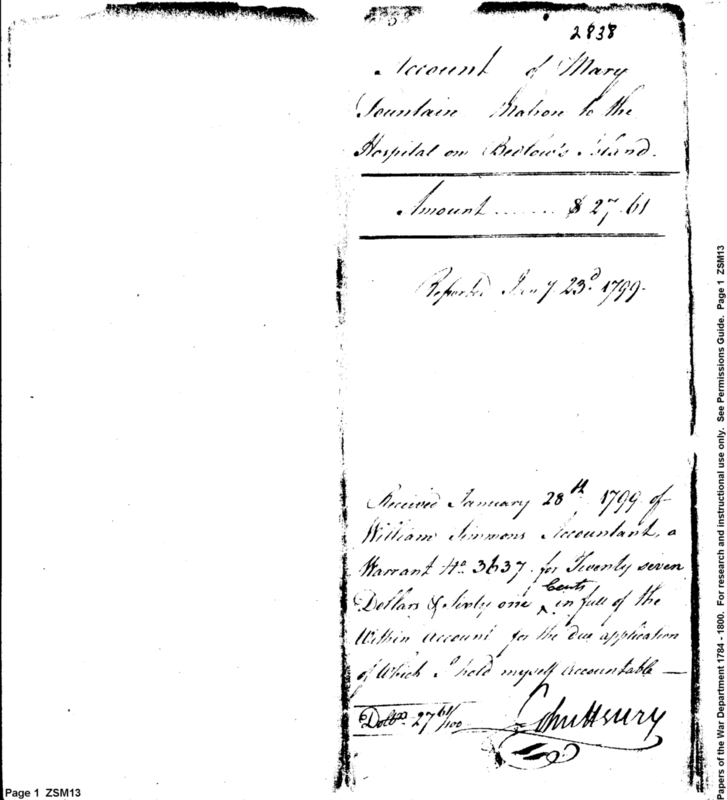 2838
Account of Mary
Fountain Matron to the
Hospital on Bedlow's Island.
Amount ....... $ 27.61
Reported Jany 23d. 1799.
Received January 28th 1799 of
William Simmons Accountant, a
Warrant No. 3637 for Twenty seven
Dollars & Sixty one Cents in full of the
Within account for the due application
of Which I hold myself accountable —
Dolls. 27 61/100 John Henry
Page 1 ZSM13
Papers of the War Department 1784 - 1800. For research and instructional use only. See Permissions Guide. Page 1 ZSM13